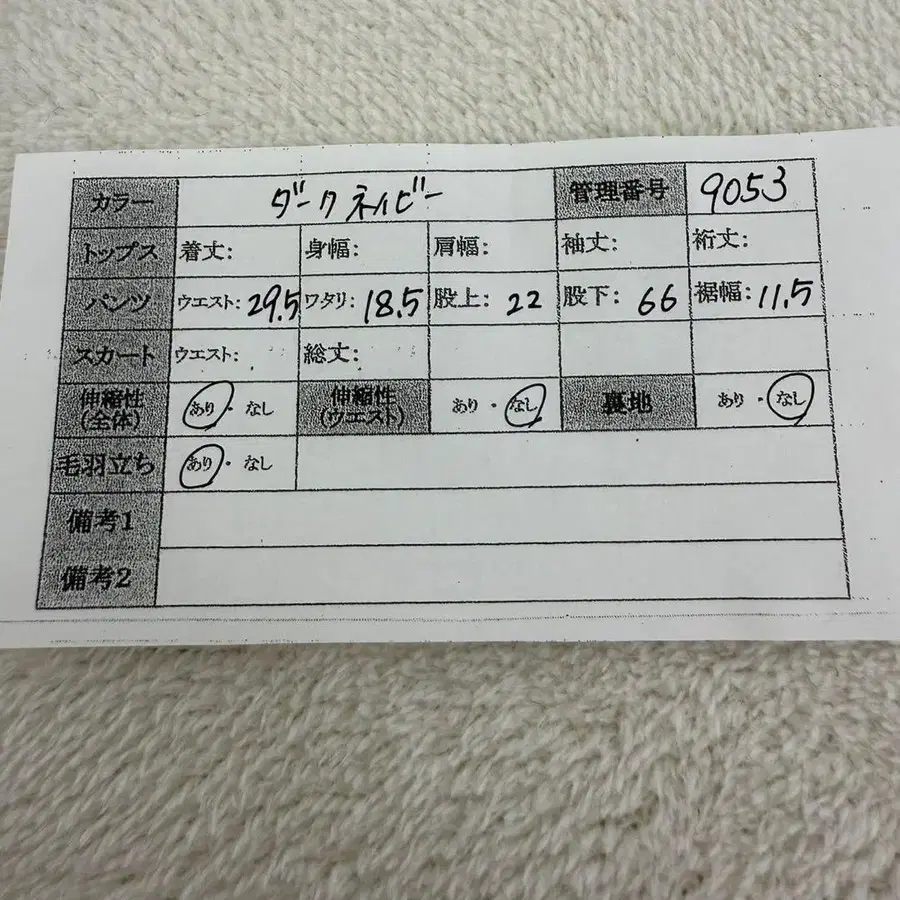 カラー ダークネイビー 管理番号 9053
トップス 着丈: 身幅: 肩幅: 袖丈: 裄丈:
パンツ ウエスト: 29.5 ワタリ: 18.5 股上: 22 股下: 66 裾幅: 11.5
スカート ウエスト: 総丈:
伸縮性(全体) あり・なし 伸縮性(ウエスト) あり・なし 裏地 あり・なし
毛羽立ち あり・なし
備考1
備考2